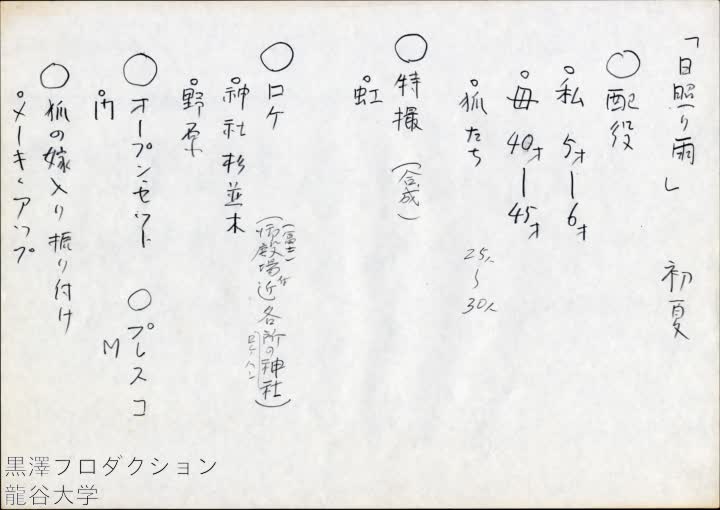 「日照り雨」 初夏
○配役
○私 5才ー6才
○母 40才ー45才
○狐たち 25人〜30人
○特撮 (合成)
○虹
○ロケ
○神社 杉並木
(御殿場近各所の神社)
(富士)
○野原
○オープン・セット ○プレスコ
○門 M
○狐の嫁入り振り付け
○メーキ・アップ
黒澤プロダクション
龍谷大学